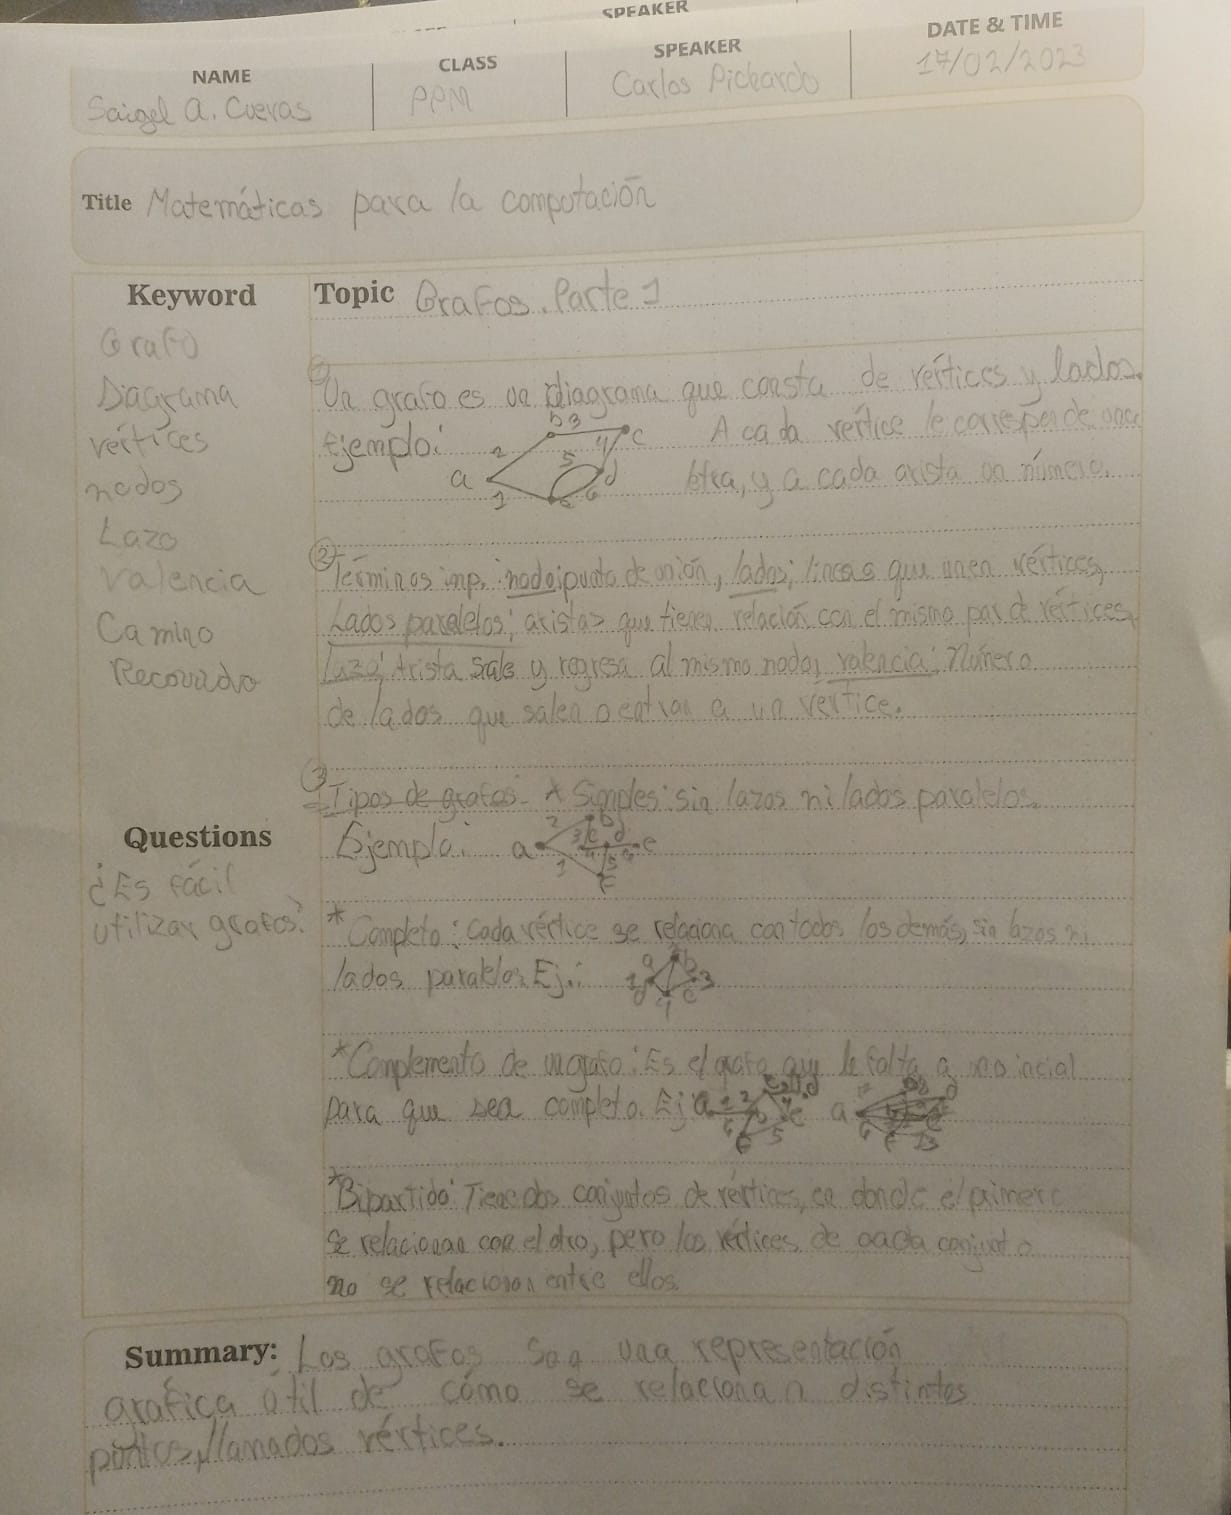 SPEAKER
NAME CLASS SPEAKER DATE & TIME
Saigel A. Cuevas PPM Carlos Pichardo 17/02/2023
Title Matemáticas para la computación
Keyword
Grafo
Diagrama
vértices
nodos
Lazo
Valencia
Camino
Recorrido
Questions
¿Es fácil
utilizar grafos?
Topic Grafos. Parte 1
① Un grafo es un diagrama que consta de vértices y lados.
Ejemplo: a b c d e 1 2 3 4 5 6 A cada vértice le corresponde una
letra, y a cada arista un número.
② Términos imp. : nodo; punto de unión, lados; líneas que unen vértices,
Lados paralelos; aristas que tienen relación con el mismo par de vértices
Lazo; Arista sale y regresa al mismo nodo, valencia: Número
de lados que salen o entran a un vértice.
③ Tipos de grafos - * Simples: sin lazos ni lados paralelos.
Ejemplo: a b c d e f 1 2 3 4 5 6
* Completo: Cada vértice se relaciona con todos los demás, sin lazos ni
lados paralelos. Ej.: a b c d 1 3 4
* Complemento de un grafo: Es el grafo que le falta a uno incial
para que sea completo. Ej: a
* Bipartido: Tiene dos conjuntos de vértices, en donde el primero
se relacionan con el otro, pero los vértices de cada conjunto
no se relacionan entre ellos.
Summary: Los grafos son una representación
grafica útil de cómo se relacionan distintos
puntos, llamados vértices.